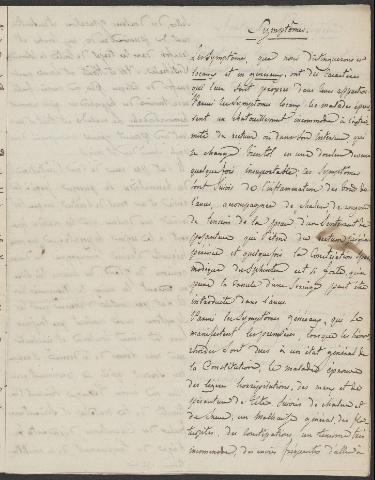 Symptomes.
Les Symptomes, que nous distinguerons en
locaux et en généraux, ont des caractères
qui leur sont propres dans leur apparition
Parmi les Symptomes locaux les malades éprou
vent un chatouillement incommode à l'extré
mité du rectum ou dans son Interieur, qui
se change bientot en une douleur
quelque fois insuportable; ces Symptomes
sont suivis de l'inflammation des bords de
l'anus, accompagnée de chaleur, de rougeur
de tension de la peau, d'un Sentiment de
pesanteur qui s'étend du rectum jusqu'au
périnée et quelque fois la Constriction spas
modique du Sphincter est si forte, qu'à
peine la canule d'une Seringue peut être
introduite dans l'anus.
Parmi les Symptomes généraux, qui se
manifestent les premiers, lorsque les hémor
rhoides sont dues à un état général de
la Constitution, le malade éprouve
des légères horripilations, des maux et de
pésanteur de tête suivis de chaleur et
de Sueur, un malaise général, des fla
tuosités, des Constipations, un tenesme très
incommode, des envies fréquentes d'aller à